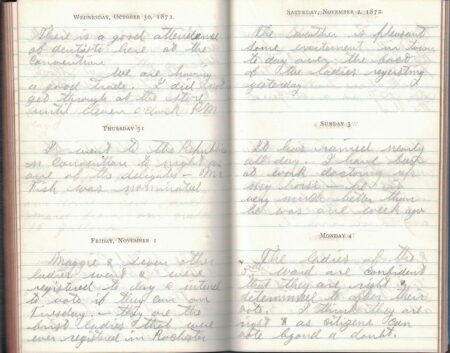 Wednesday, October 30, 1872.
There is a good attendance
of dentists here at the
Convention
We are having
a good trade. I did not
get through at the store
until eleven o'clock P.M.
Thursday 31
I went to the Republic
an Convention to night as
one of the delegates - Mr
Fish was nominated
Friday, November 1
Maggie & seven other
ladies went & were
registered to day & intend
to vote if they can on
Tuesday. - they are the
first ladies that were
ever registered in Rochester
Saturday, November 2, 1872.
The weather is pleasant
Some excitement in town
to day over the fact
of the ladies registing
yesterday
Sunday 3
It has rained nearly
all day - I have been
at work doctoring up
my horse - he is
very much better than
he was one week ago
Monday 4
The ladies of the
ward are confident
that they are right &
determined to offer their
vote. I think they are
right & as citizens can
vote beyond a doubt.